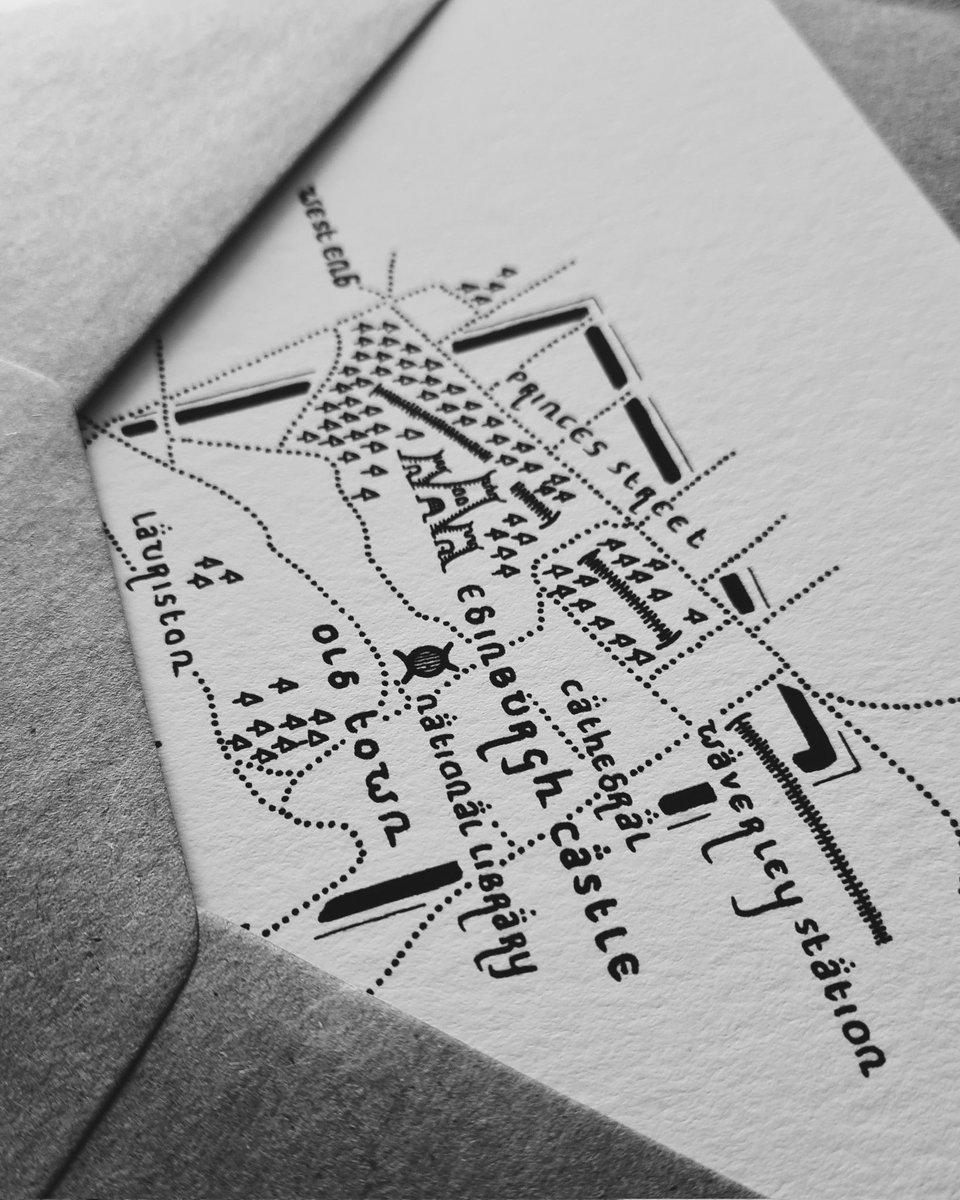 WEST END
PRINCES STREET
LÄURISTON
EDINBURGH CÄSTLE
OLD TOWN
NÄTIONÄL LIBRÄRY
CÄTHEDRÄL
WÄVERLEY STÄTION